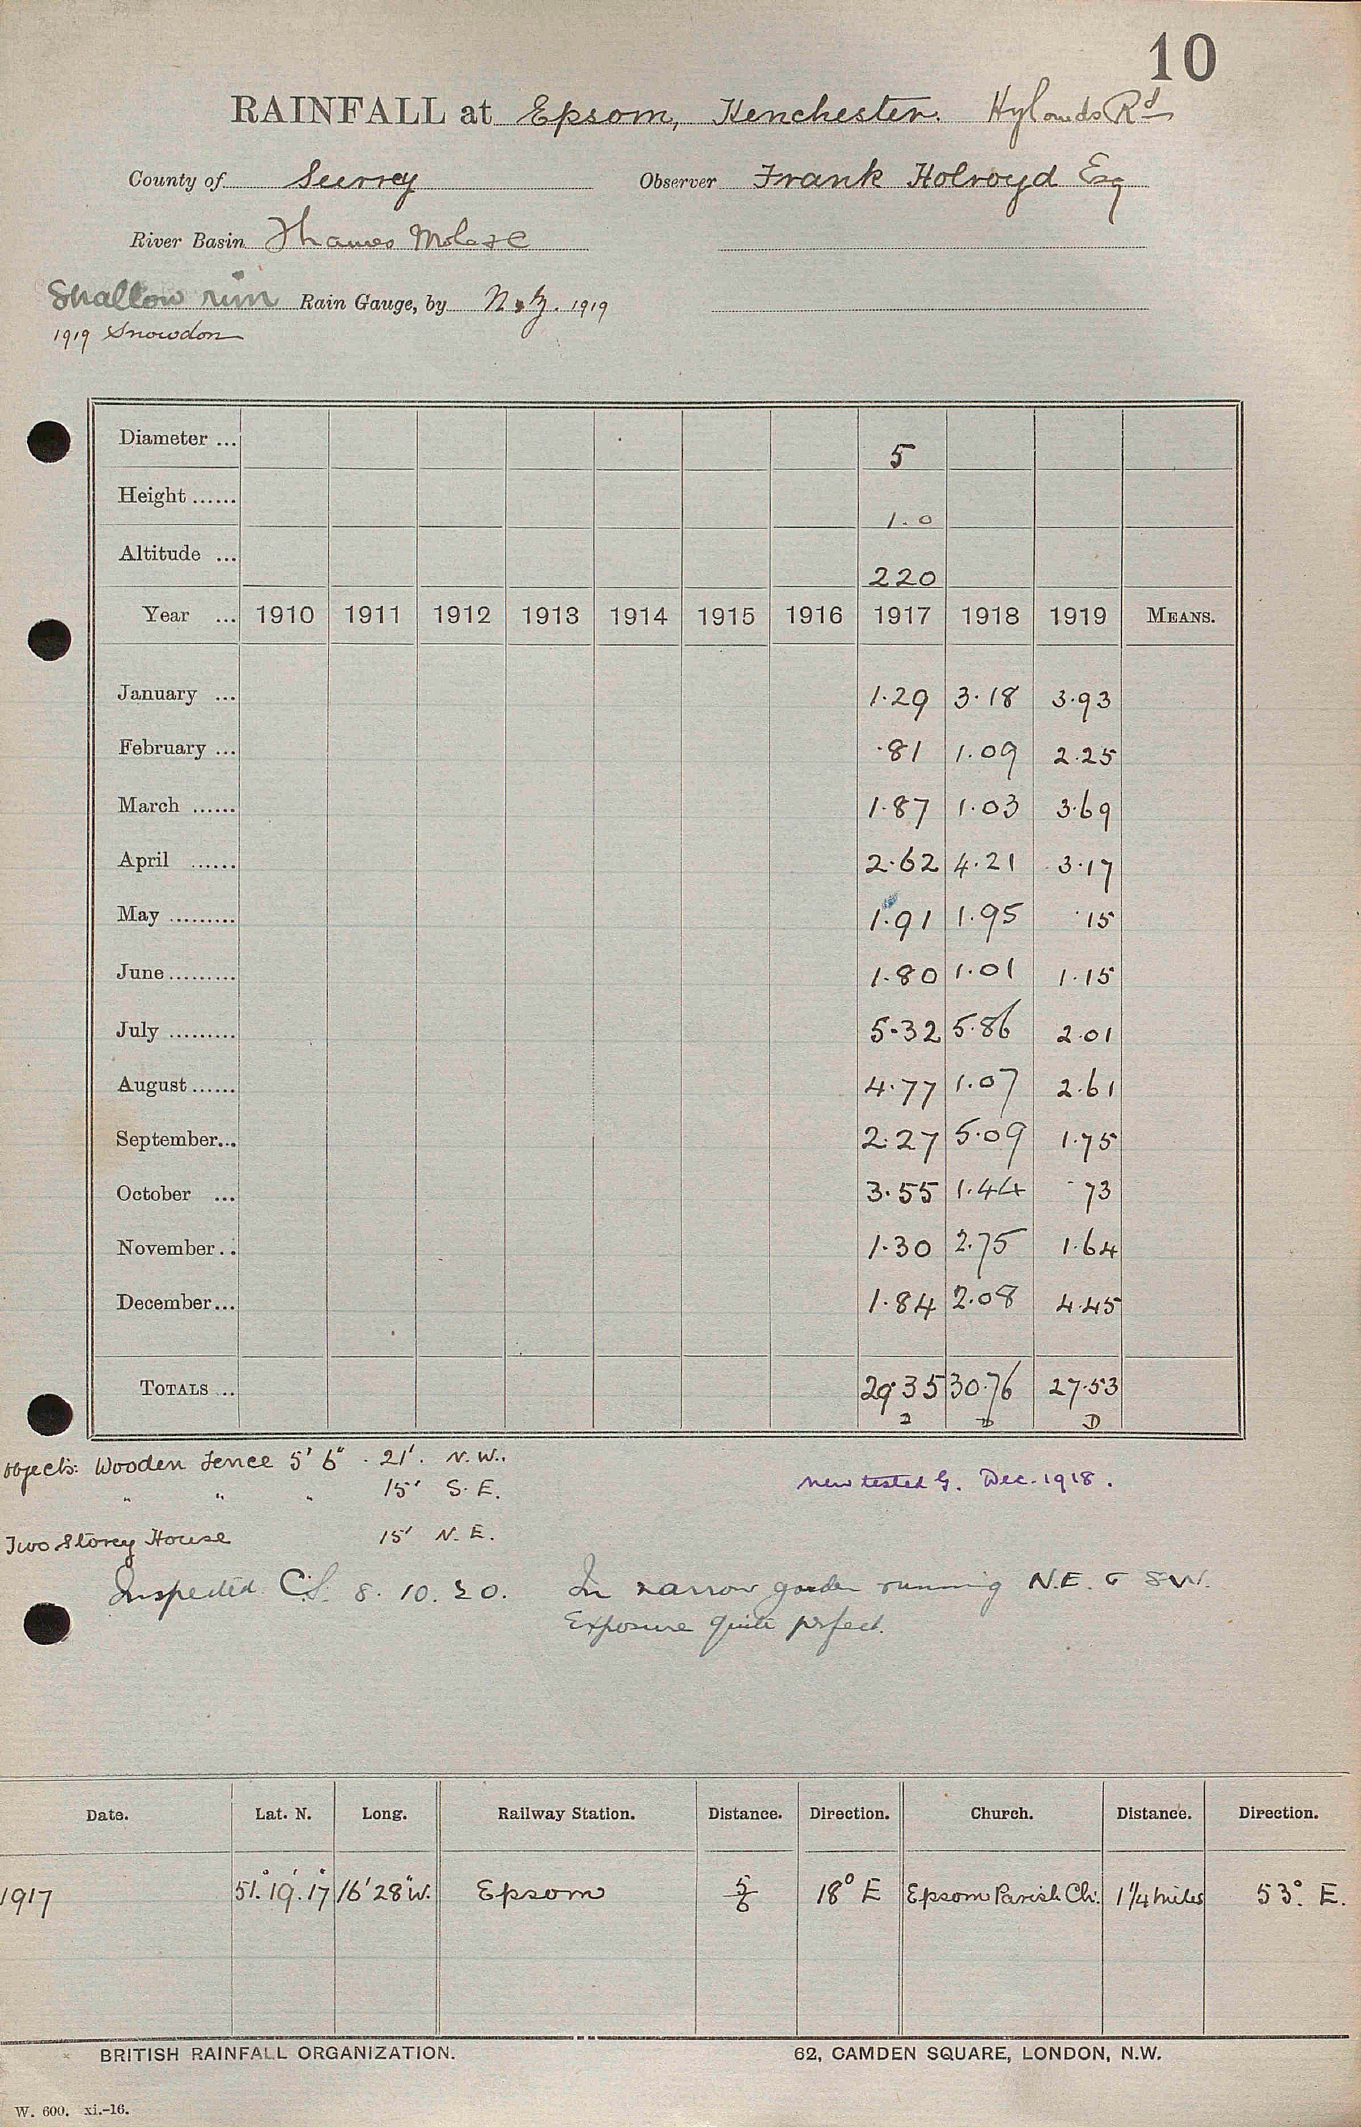 10
RAINFALL at Epsom, Kenchester. Hylands Rd
County of Surrey Observer Frank Holroyd Esq
River Basin Thames Mole
Shallow rim Rain Gauge, by N & Z. 1919
1919 Snowdon
Diameter ... 5
Height ...... 1.0
Altitude ... 220
Year ... 1910 1911 1912 1913 1914 1915 1916 1917 1918 1919 MEANS.
January ... 1.29 3.18 3.93
February ... .81 1.09 2.25
March ...... 1.87 1.03 3.69
April ...... 2.62 4.21 3.17
May ......... 1.91 1.95 .15
June ......... 1.80 1.01 1.15
July ......... 5.32 5.86 2.01
August ...... 4.77 1.07 2.61
September... 2.27 5.09 1.75
October ... 3.55 1.44 .73
November .. 1.30 2.75 1.64
December... 1.84 2.08 4.45
TOTALS ... 29.35 30.76 27.53
D D D
Objects: Wooden Fence 5' 6" . 21'. N.W.
" " " 15' S.E.
new tested G. Dec. 1918.
Two Storey House 15' N.E.
Inspected C.S. 8. 10. 20. In narrow garden running N.E. & SW.
Exposure quite perfect.
Date. Lat. N. Long. Railway Station. Distance. Direction. Church. Distance. Direction.
1917 51°.19'.17" 16'28"W. Epsom 5/6 18° E Epsom Parish Ch. 1 1/4 miles 53°. E.
BRITISH RAINFALL ORGANIZATION. 62, CAMDEN SQUARE, LONDON, N.W.
W. 600. xi.-16.